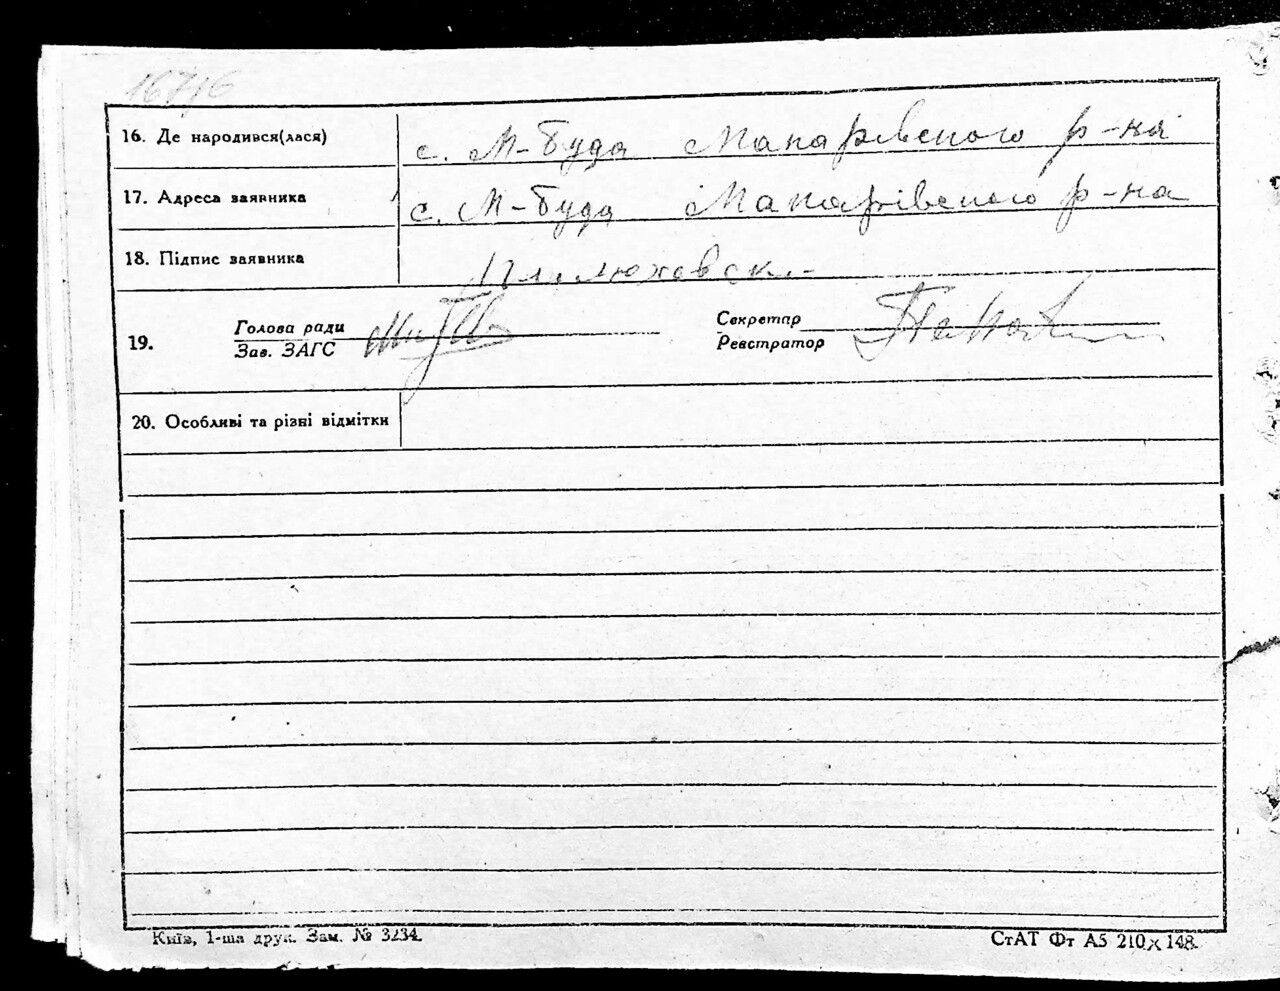 167/6
16. Де народився(лася) с. М-Буда Макарівского р-на
17. Адреса заявника с. М-Буда Макарівского р-на
18. Підпис заявника
19. Голова ради
Зав. ЗАГС
Секретар
Реєстратор
20. Особливі та різні відмітки
Київ, 1-ша друк. Зам. № 3234.
СтАТ Фт А5 210х148.